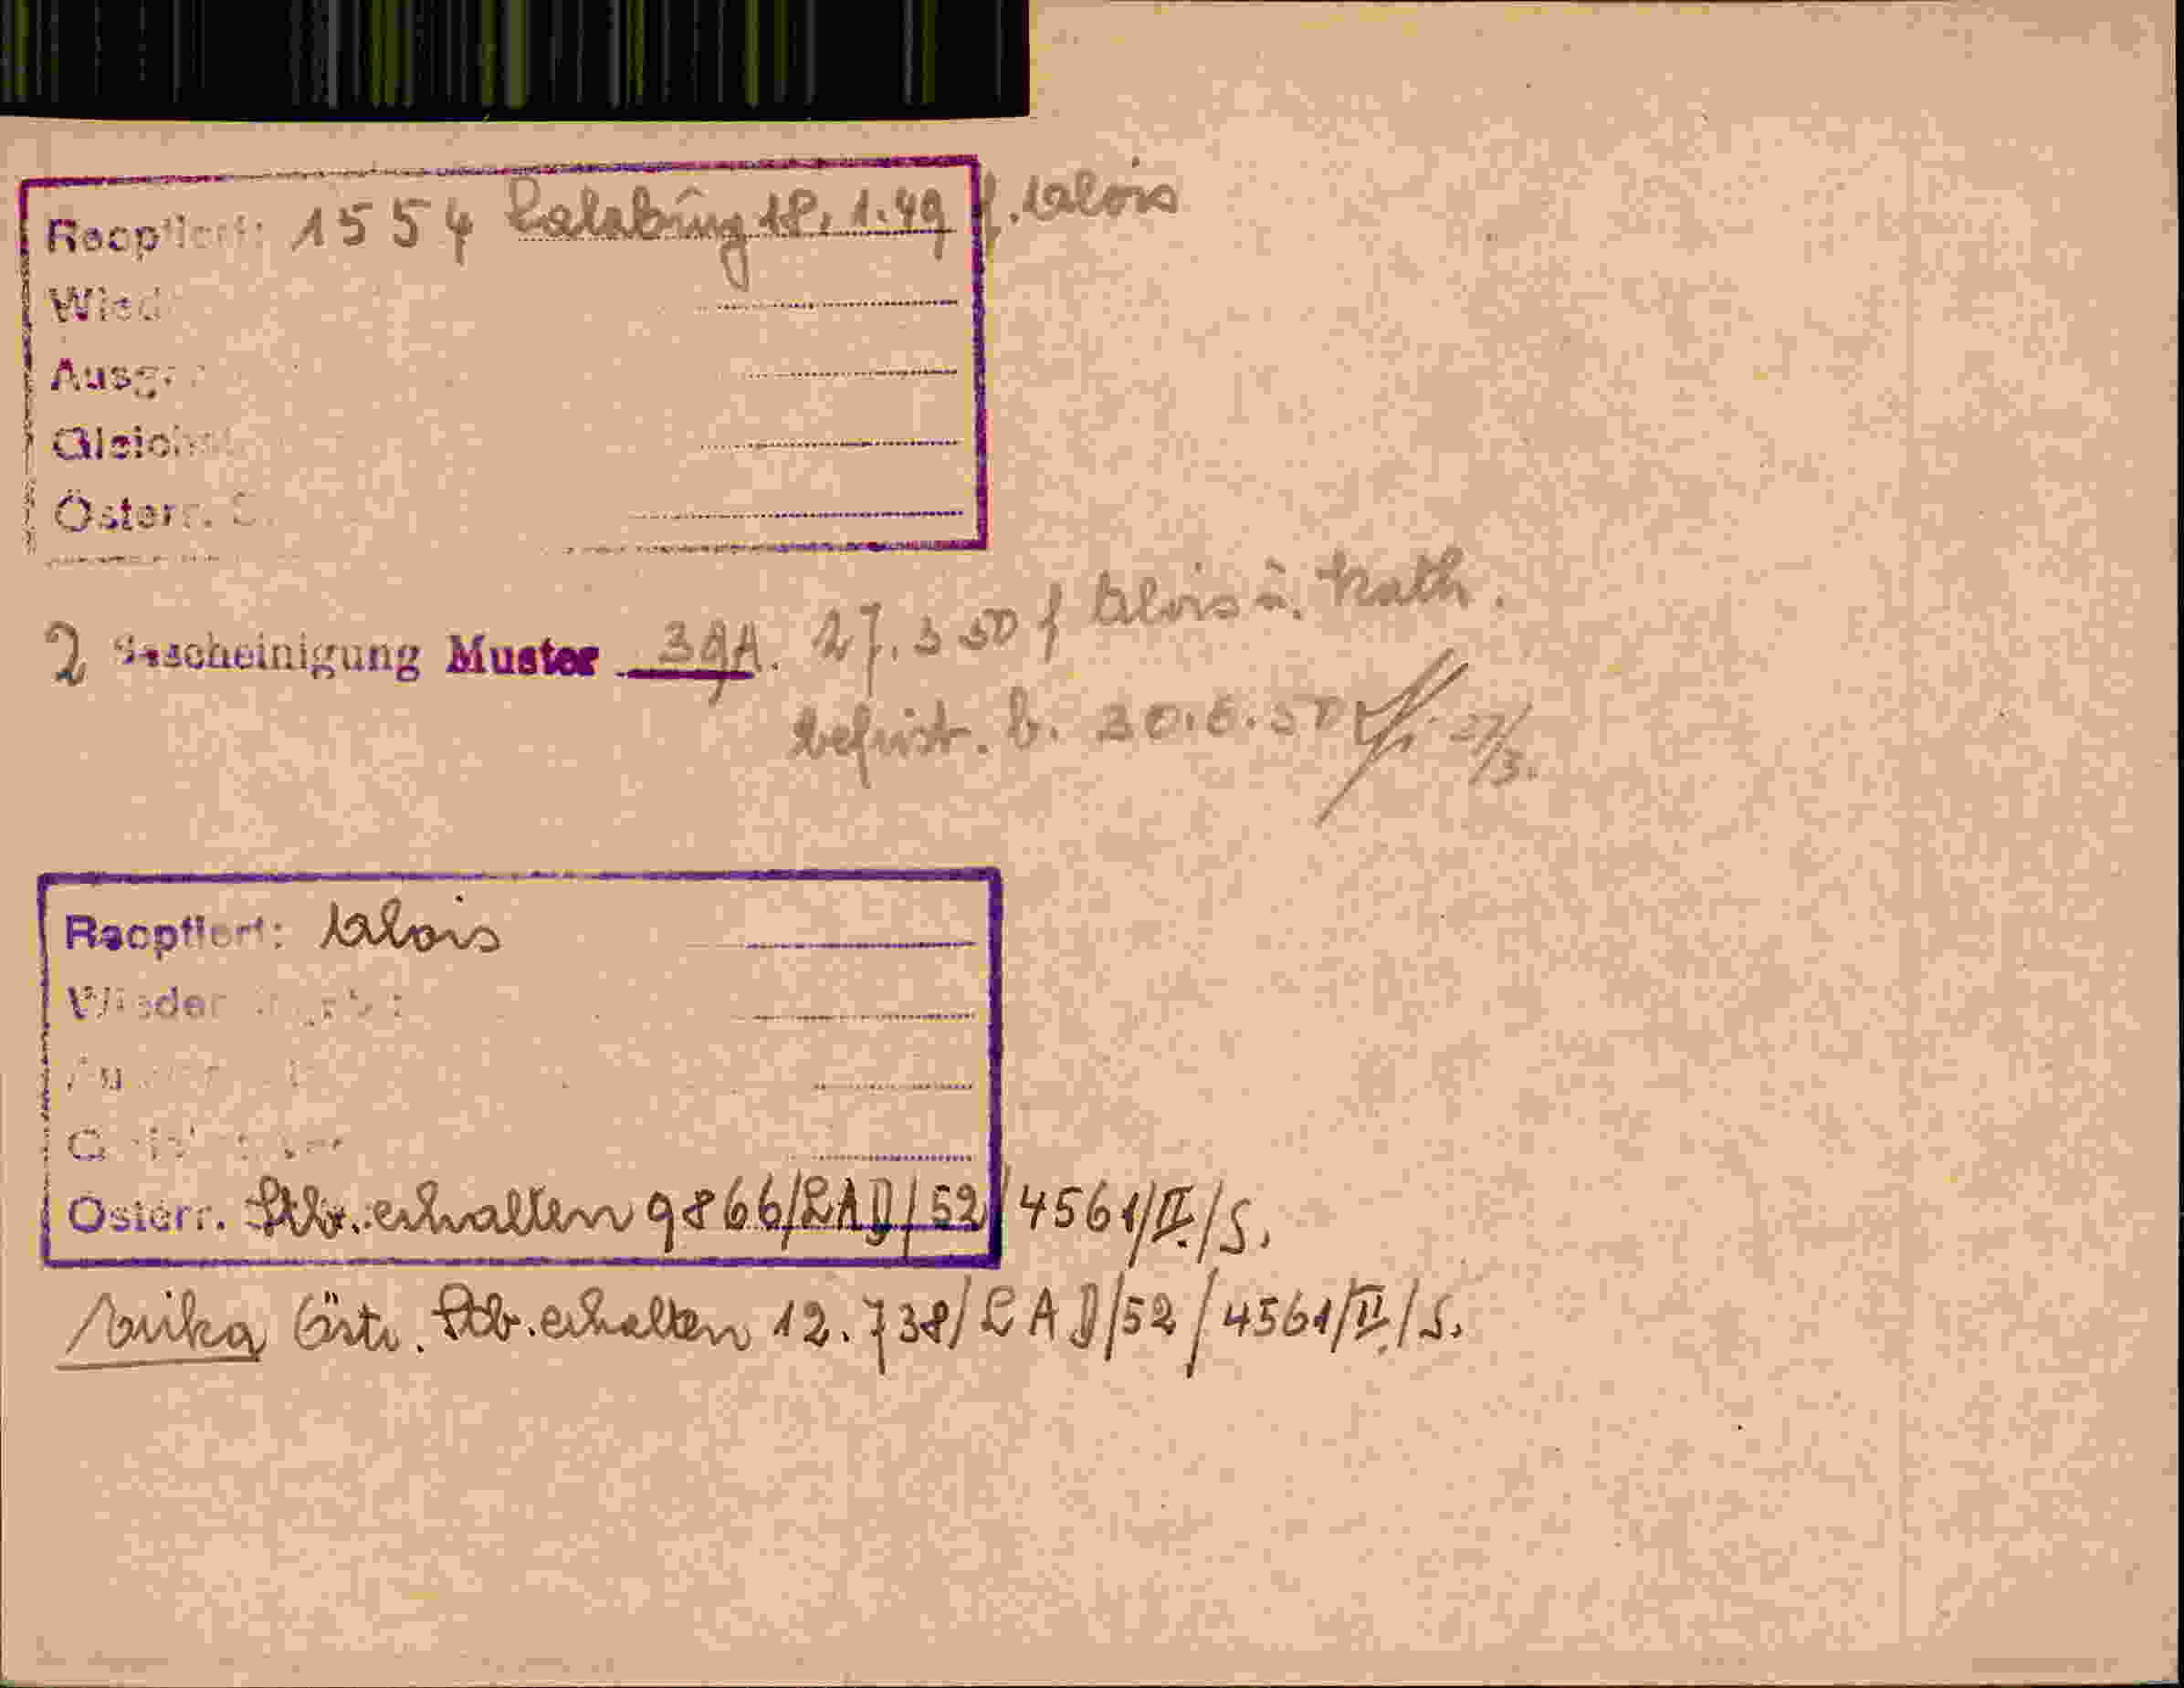 Reoptiert: 1554 Salzburg 18.1.49 f. Alois
Wied
Ausg
Gleich
Österr. S
2 Bescheinigung Muster 39A. 27.3 50 f Alois u. Kath.
befrist. b. 30.6.50 27/3.
Reoptiert: Alois
Wieder
Österr. Stb. erhalten 9866/LAD/52/4561/II./S.
Östr. Stb. erhalten 12.738/LAD/52/4561/II./S.